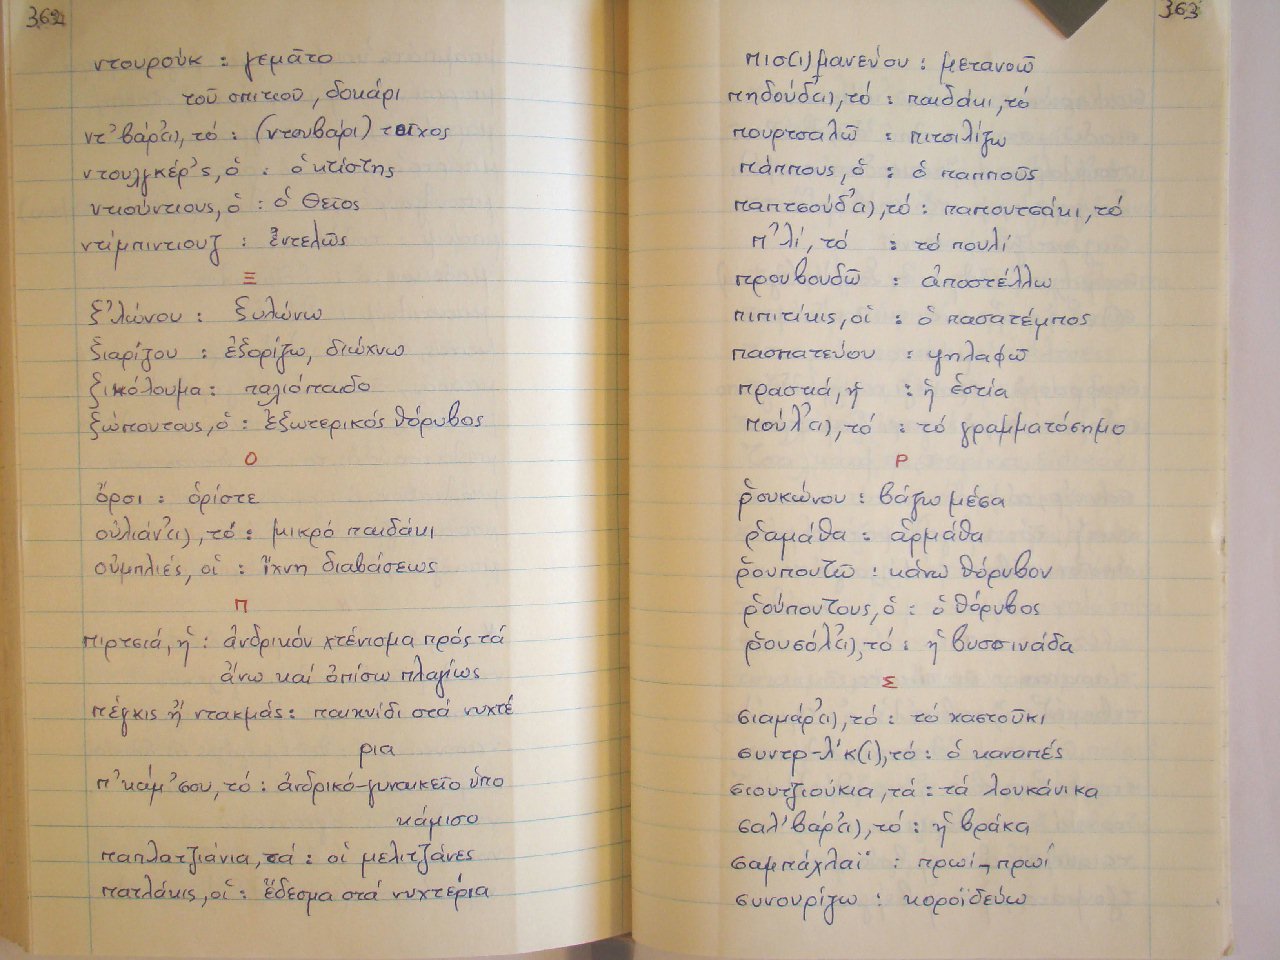 362
ντουρούκ : γεμᾶτο
τοῦ σπιτιοῦ, δοκάρι
ντ᾽βάρ᾽(ι), τό : (ντουβάρι) τοῖχος
ντουλγκέρ᾽ς, ὁ : ὁ κτίστης
ντιούντιους, ὁ : ὁ θεῖος
ντίμπιντιουζ : ἐντελῶς
Ξ
ξ᾽λώνου : ξυλώνω
ξιαρίζου : ἐξορίζω, διώχνω
ξικόλουμα : παλιόπαιδο
ξώπουτους, ὁ : ἐξωτερικός θόρυβος
Ο
ὅρσι : ὁρίστε
οὐλιάν᾽(ι), τό : μικρό παιδάκι
οὐμπλιές, οἱ : ἴχνη διαβάσεως
Π
πιρτσιά, ἡ : ἀνδρικόν χτένισμα πρός τά
ἄνω καί ὀπίσω πλαγίως
πέγκις ἤ ντακμάς : παιχνίδι στά νυχτέ
ρια
π᾽κάμ᾽σου, τό : ἀνδρικό-γυναικεῖο ὑπο
κάμισο
παπλατζιάνια, τά : οἱ μελιτζάνες
πατλάκις, οἱ : ἔδεσμα στά νυχτέρια
363
πισ(ι)μανεύου : μετανοῶ
πηδούδ᾽(ι), τό : παιδάκι, τό
πουρτσαλῶ : πιτσιλίζω
πάππους, ὁ : ὁ παπποῦς
παπτσούδ᾽(ι), τό : παπουτσάκι, τό
π᾽λί, τό : τό πουλί
προυβουδῶ : ἀποστέλλω
πιπιτίκις, οἱ : ὁ πασατέμπος
πασπατεύου : ψηλαφῶ
πραστιά, ἡ : ἡ ἑστία
πούλ᾽(ι), τό : τό γραμματόσημο
Ρ
ῥουκώνου : βάζω μέσα
ῥαμάθα : ἁρμάθα
ῥουπουτῶ : κάνω θόρυβον
ῥούπουτους, ὁ : ὁ θόρυβος
ῥουσόλ᾽(ι), τό : ἡ βυσσινάδα
Σ
σιαμάρ᾽(ι), τό : τό χαστοῦκι
συντρ-λίκ(ι), τό : ὁ καναπές
σιουτζιούκια, τά : τά λουκάνικα
σαλ᾽βάρ᾽(ι), τό : ἡ βράκα
σαμπάχλαϊ : πρωί-πρωί
συνουρίζω : κοροϊδεύω